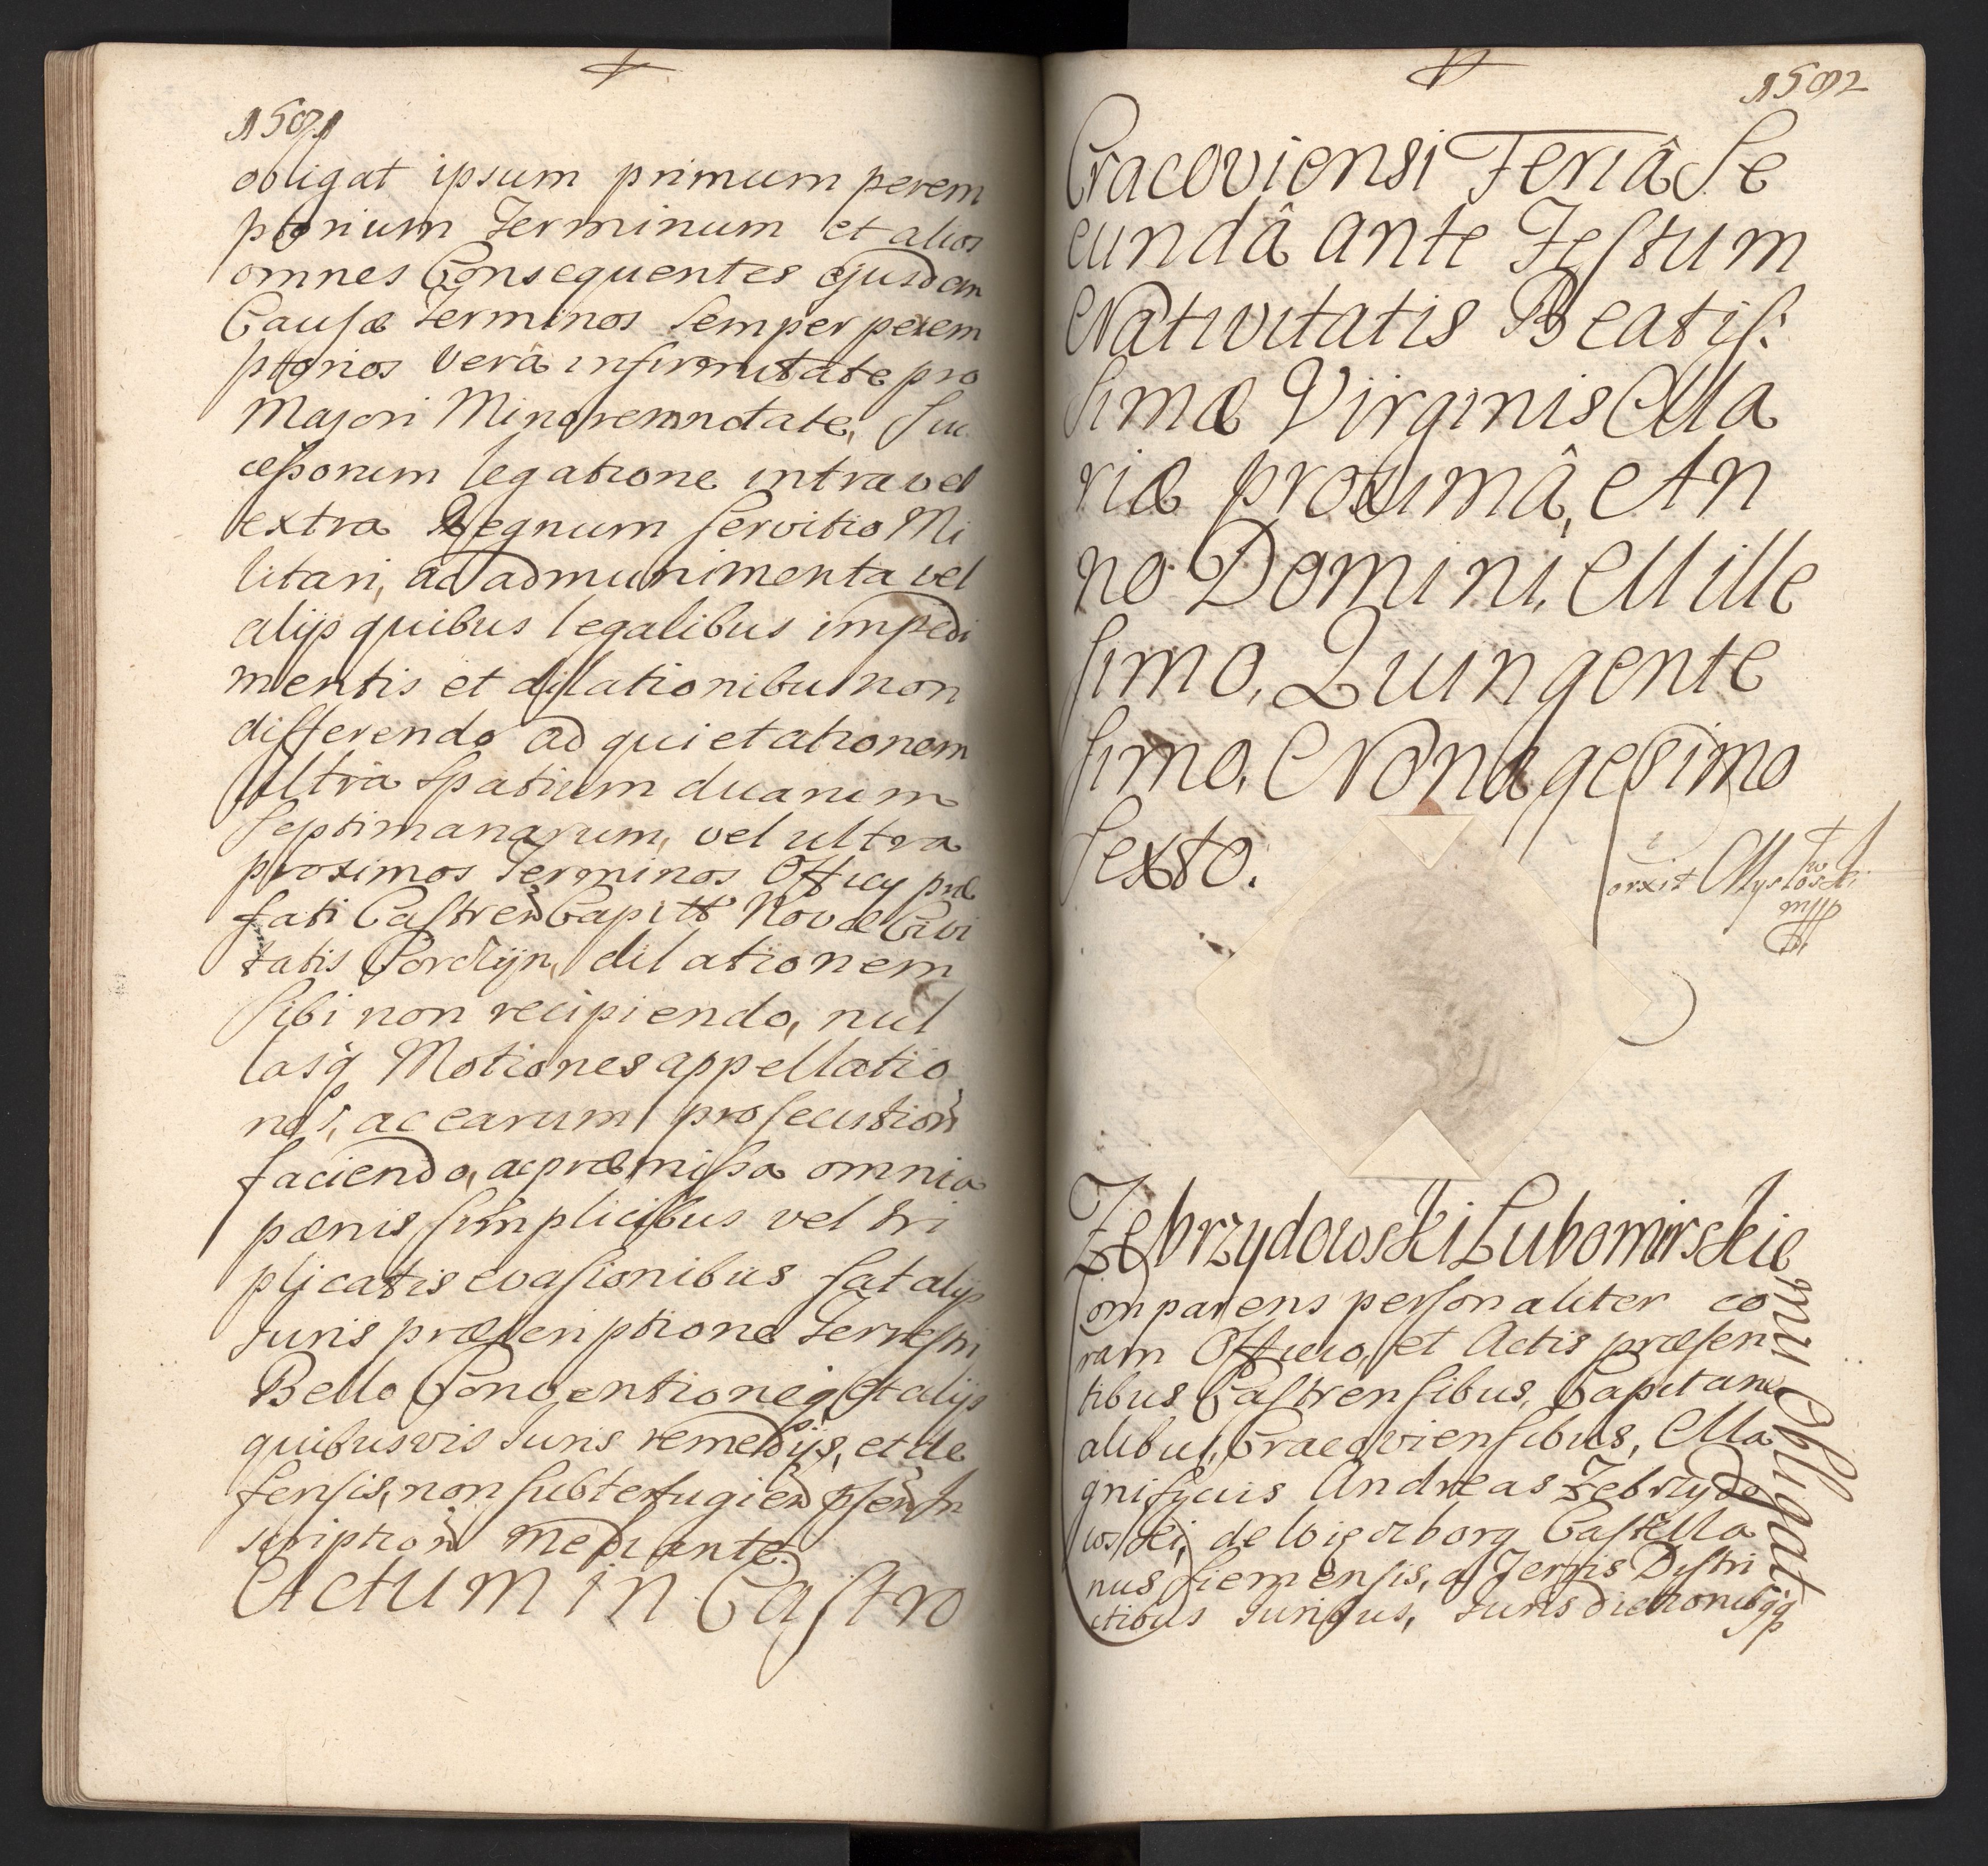 1591
obligat ipsum primum perem
ptorium Terminum et alios
omnes Consequentes ejusdem
Causæ Terminos semper perem
ptorios verâ infirmitate pro
Majori Minorennitate, Suc
cessorum legatione intra vel
extra Regnum servitio Mi
litari, ad admunimenta vel
alijs quibus legalibus impedi
mentis et dilationibus non
differendo ad quietationem
ultra spatium duarum
septimanarum, vel ultra
proximos Terminos Officij præ
fati Castren Capitt Novæ Civi
tatis dilationem
sibi non recipiendo, nul
lasq Motiones appellatio
nes, ac earum prosecution
faciendo, ac præmissa omnia
pænis simplicibus vel tri
plicatis evasionibus fatalijs
Juris præscriptione Terrestri
Bello Conventioneq et alijs
quibusvis Juris remedijs, et de
fensis, non subterfugien psen In
scription mediante.
Actum in Castro
1592
Cracoviensi Feriâ Se
cundâ ante Festum
Nativitatis Beatis:
simæ Virginis Ma
riæ proximâ, An
no Domini, Mille
simo, Quingente
simo, Nonagesimo
Sexto.
Zebrzydowski Lubomirskie
mu Obligat
Comparens personaliter co
ram Officio, et Actis præsen
tibus Castrensibus, Capitane
alibus, Cracoviensibus, Ma
gnificus Andreas Zebrzydo
wski, de Wieczborg Castella
nus Sremensis, a Terris Distri
ctibus Juribus, Jurisdictionibqq